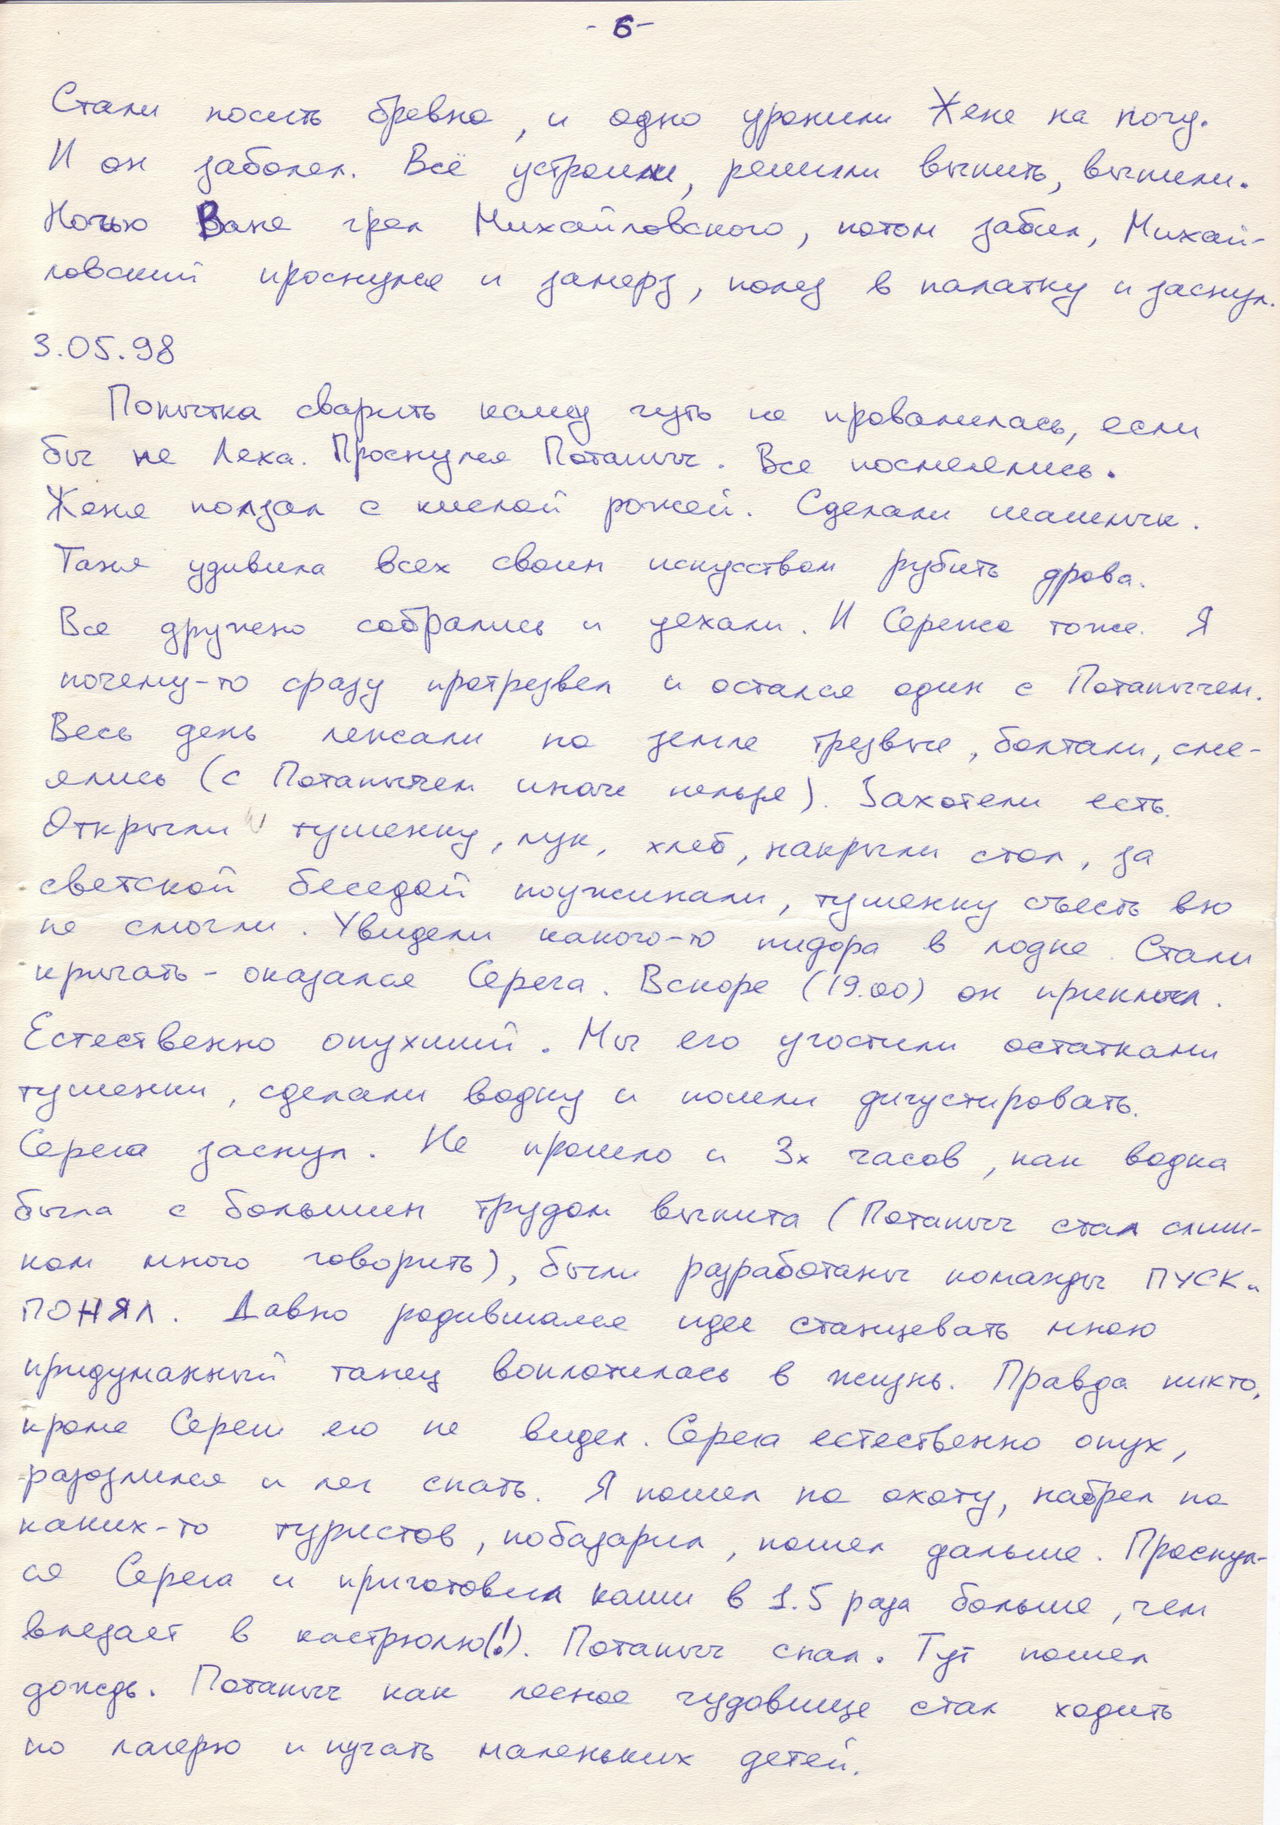 - 6 -
Стали носить бревна, и одно уронили Жене на ногу.
И он заболел. Всё устроили, решили выпить, выпили.
Ночью Ваня грел Михайловского, потом забил, Михай-
ловский проснулся и замерз, полез в палатку и заснул.
3.05.98
Попытка сварить кашу чуть не провалилась, если
бы не Леха. Проснулся Потапыч. Все посмеялись.
Женя ползал с кислой рожей. Сделали шашлык.
Таня удивила всех своим искусством рубить дрова.
Все дружно собрались и уехали. И Сережа тоже. Я
почему-то сразу протрезвел и остался один с Потапычем.
Весь день лежали на земле трезвые, болтали, сме-
ялись (с Потапычем иначе нельзя). Захотели есть.
Открыли тушенку, лук, хлеб, накрыли стол, за
светской беседой поужинали, тушенку съесть всю
не смогли. Увидели какого-то пидора в лодке. Стали
кричать - оказался Серега. Вскоре (19.00) он приплыл.
Естественно опухший. Мы его угостили остатками
тушенки, сделали водку и пошли дигустировать.
Серега заснул. Не прошло и 3х часов, как водка
была с большим трудом выпита (Потапыч стал слиш-
ком много говорить), были разработаны команды ПУСК и
ПОНЯЛ. Давно родившаяся идея станцевать мною
придуманный танец воплотилась в жизнь. Правда никто,
кроме Сереги его не видел. Серега естественно опух,
разозлился и лег спать. Я пошел на охоту, набрел на
каких-то туристов, побазарил, пошел дальше. Проснул-
ся Серега и приготовил каши в 1.5 раза больше, чем
влезает в кастрюлю(!). Потапыч спал. Тут пошел
дождь. Потапыч как лесное чудовище стал ходить
по лагерю и пугать маленьких детей.